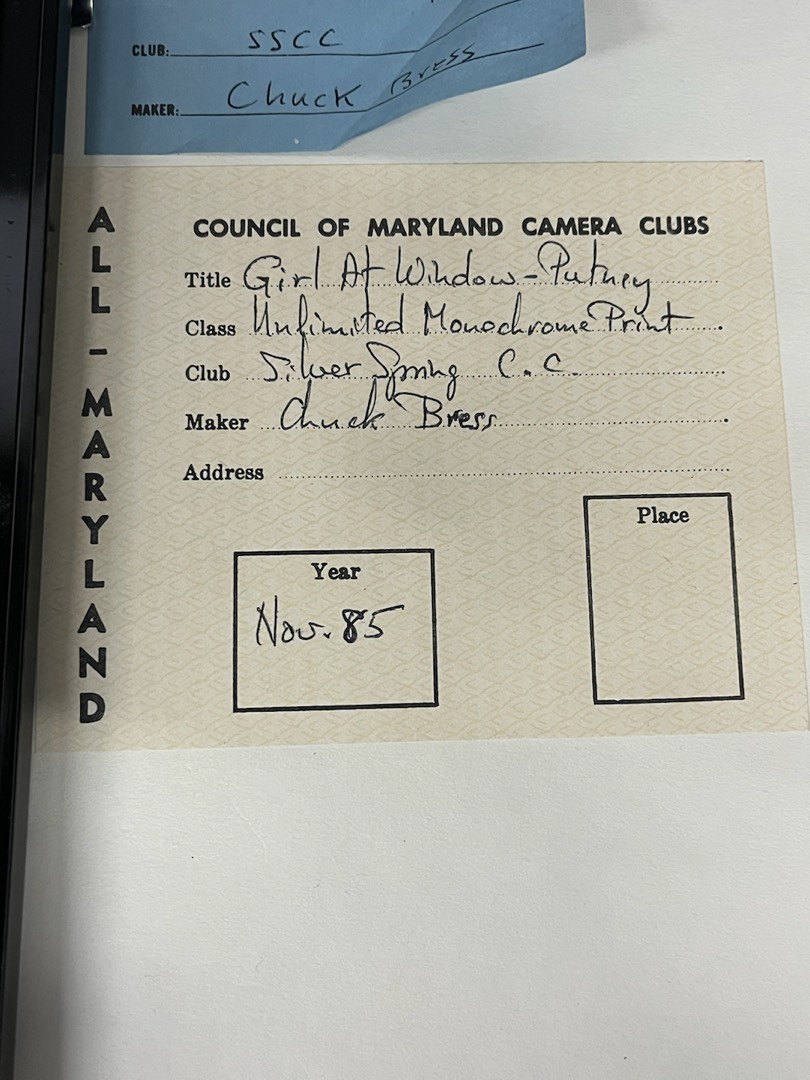 CLUB: SSCC
MAKER: Chuck Bress
ALL-MARYLAND
COUNCIL OF MARYLAND CAMERA CLUBS
Title Girl At Window - Putney
Class Unlimited Monochrome Print
Club Silver Spring C.C.
Maker Chuck Bress
Address
Place
Year
Nov. 85